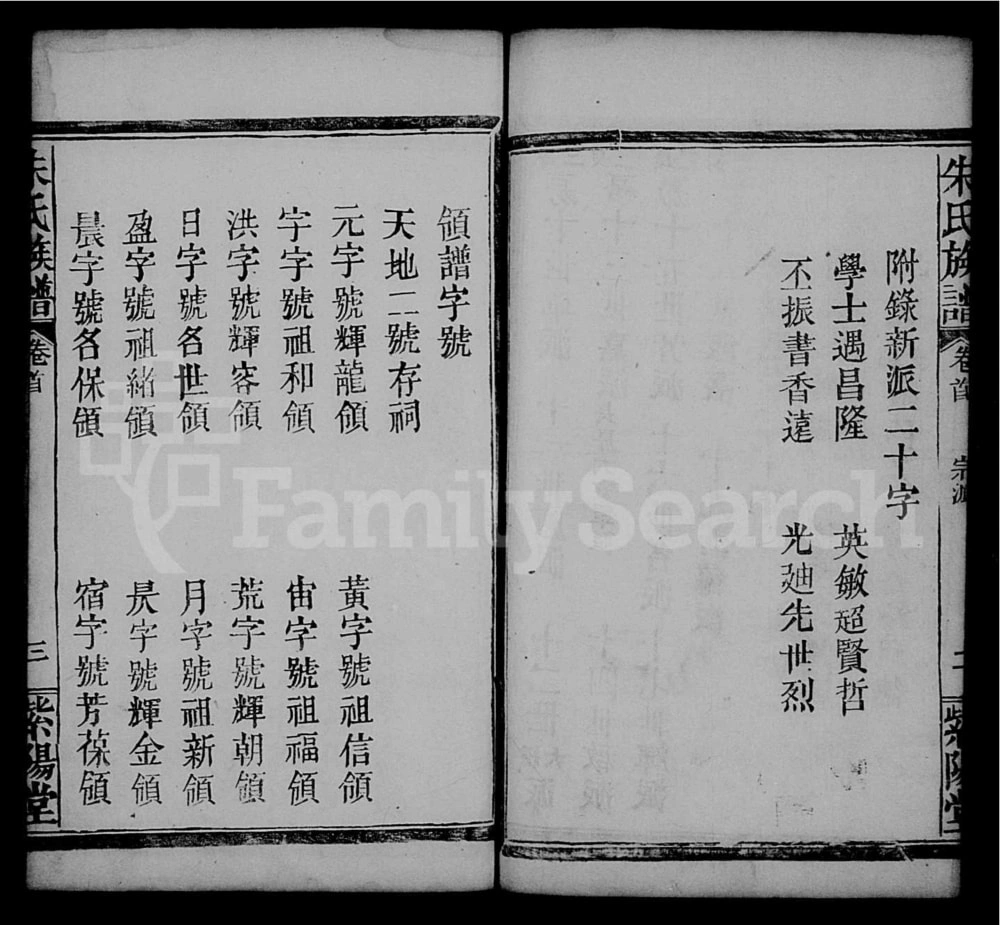 朱氏族譜 卷首 宗派 二 紫陽堂
附錄新派二十字
學士遇昌隆 英敏超賢哲
丕振書香遠 光廸先世烈
領譜字號
天地二號存祠
元字號輝龍領 黃字號祖信領
宇字號祖和領 宙字號祖福領
洪字號輝容領 荒字號輝朝領
日字號名世領 月字號祖新領
盈字號祖緒領 昃字號輝金領
晨字號名保領 宿字號芳葆領
朱氏族譜 卷首 三 紫陽堂
FamilySearch